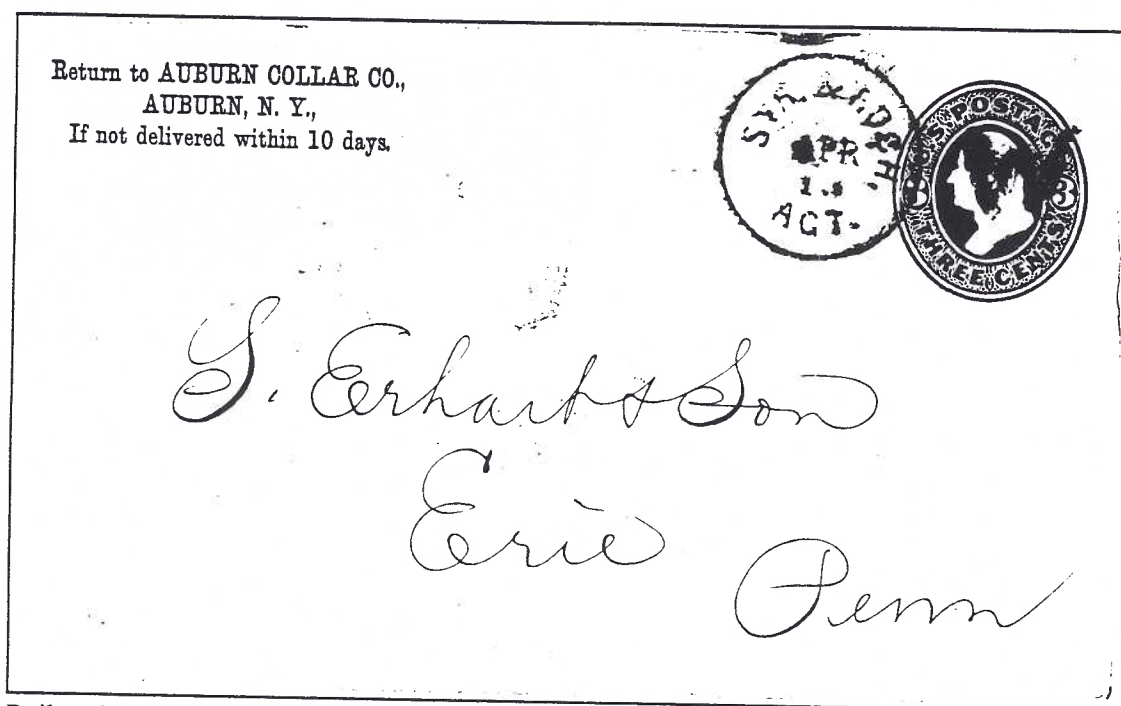 Return to AUBURN COLLAR CO.,
AUBURN, N. Y.,
If not delivered within 10 days.
APR
AGT.
U.S. POSTAGE
3 3
THREE CENTS
S. Erhart & Son
Erie
Penn